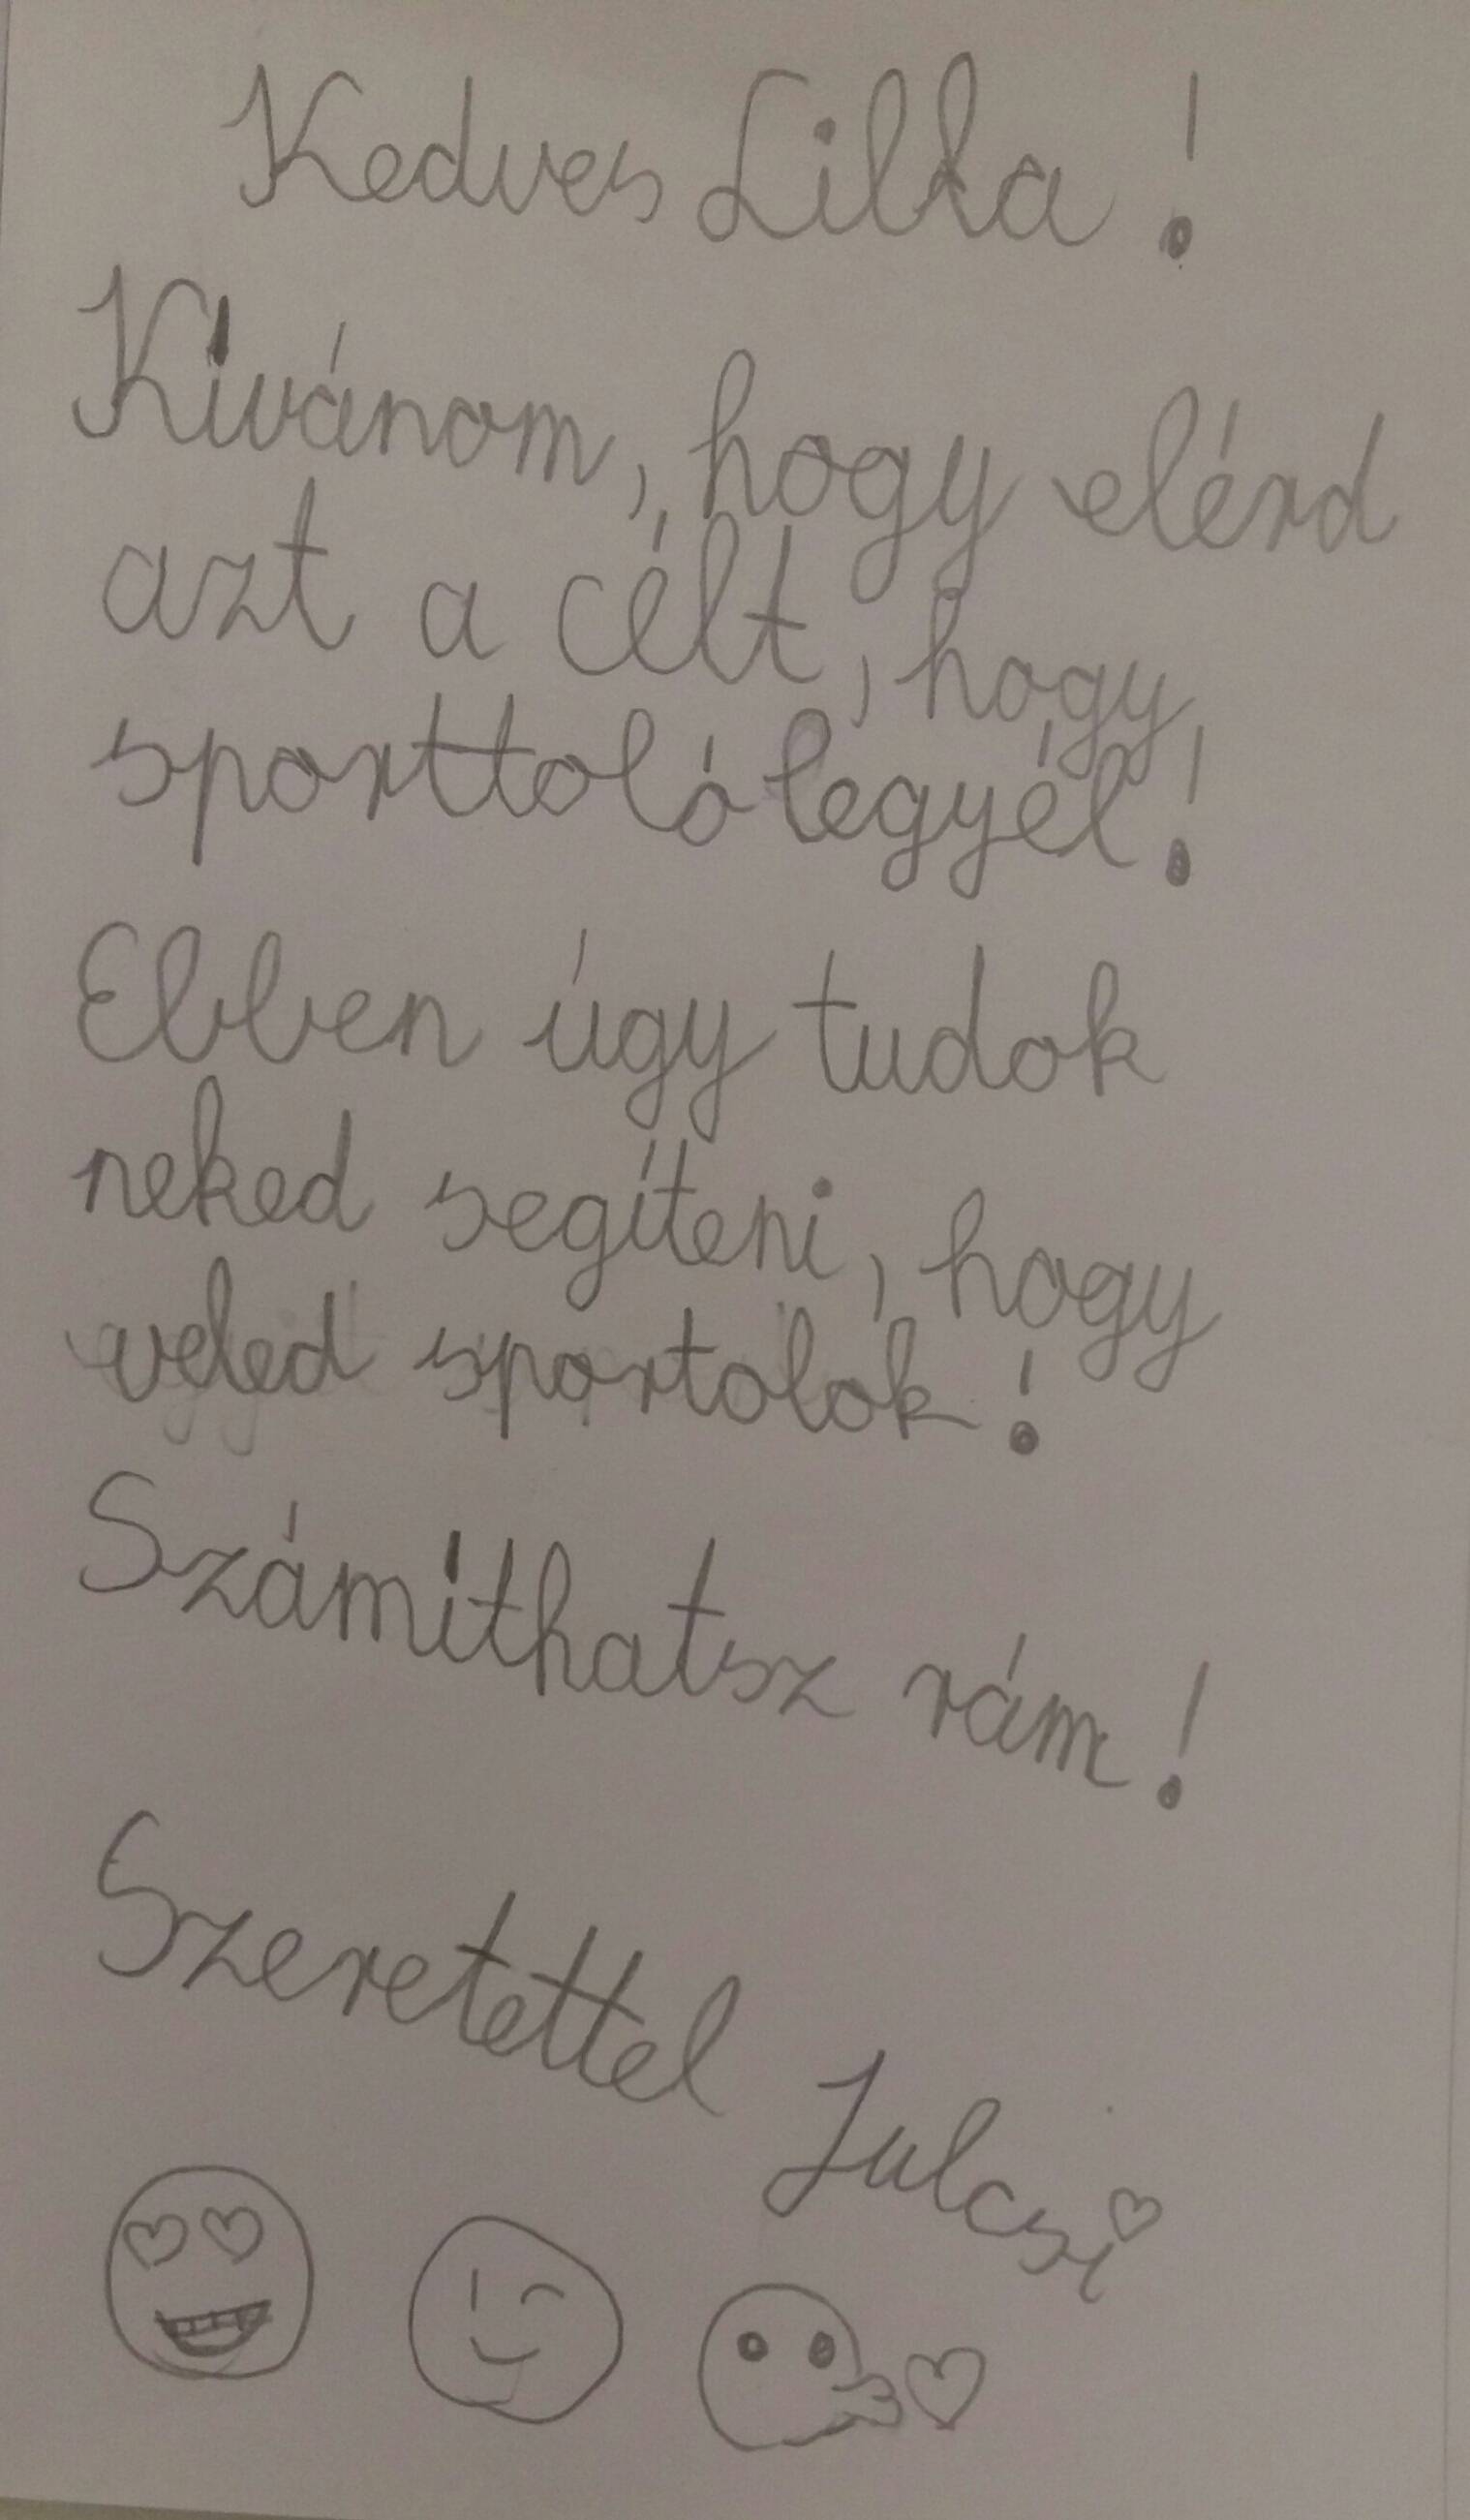 Kedves Lilla!
Kívánom, hogy elérd
azt a célt, hogy
sporttoló legyél!
Ebben úgy tudok
neked segíteni, hogy
veled sportolok!
Számíthatsz rám!
Szeretettel
Julcsi